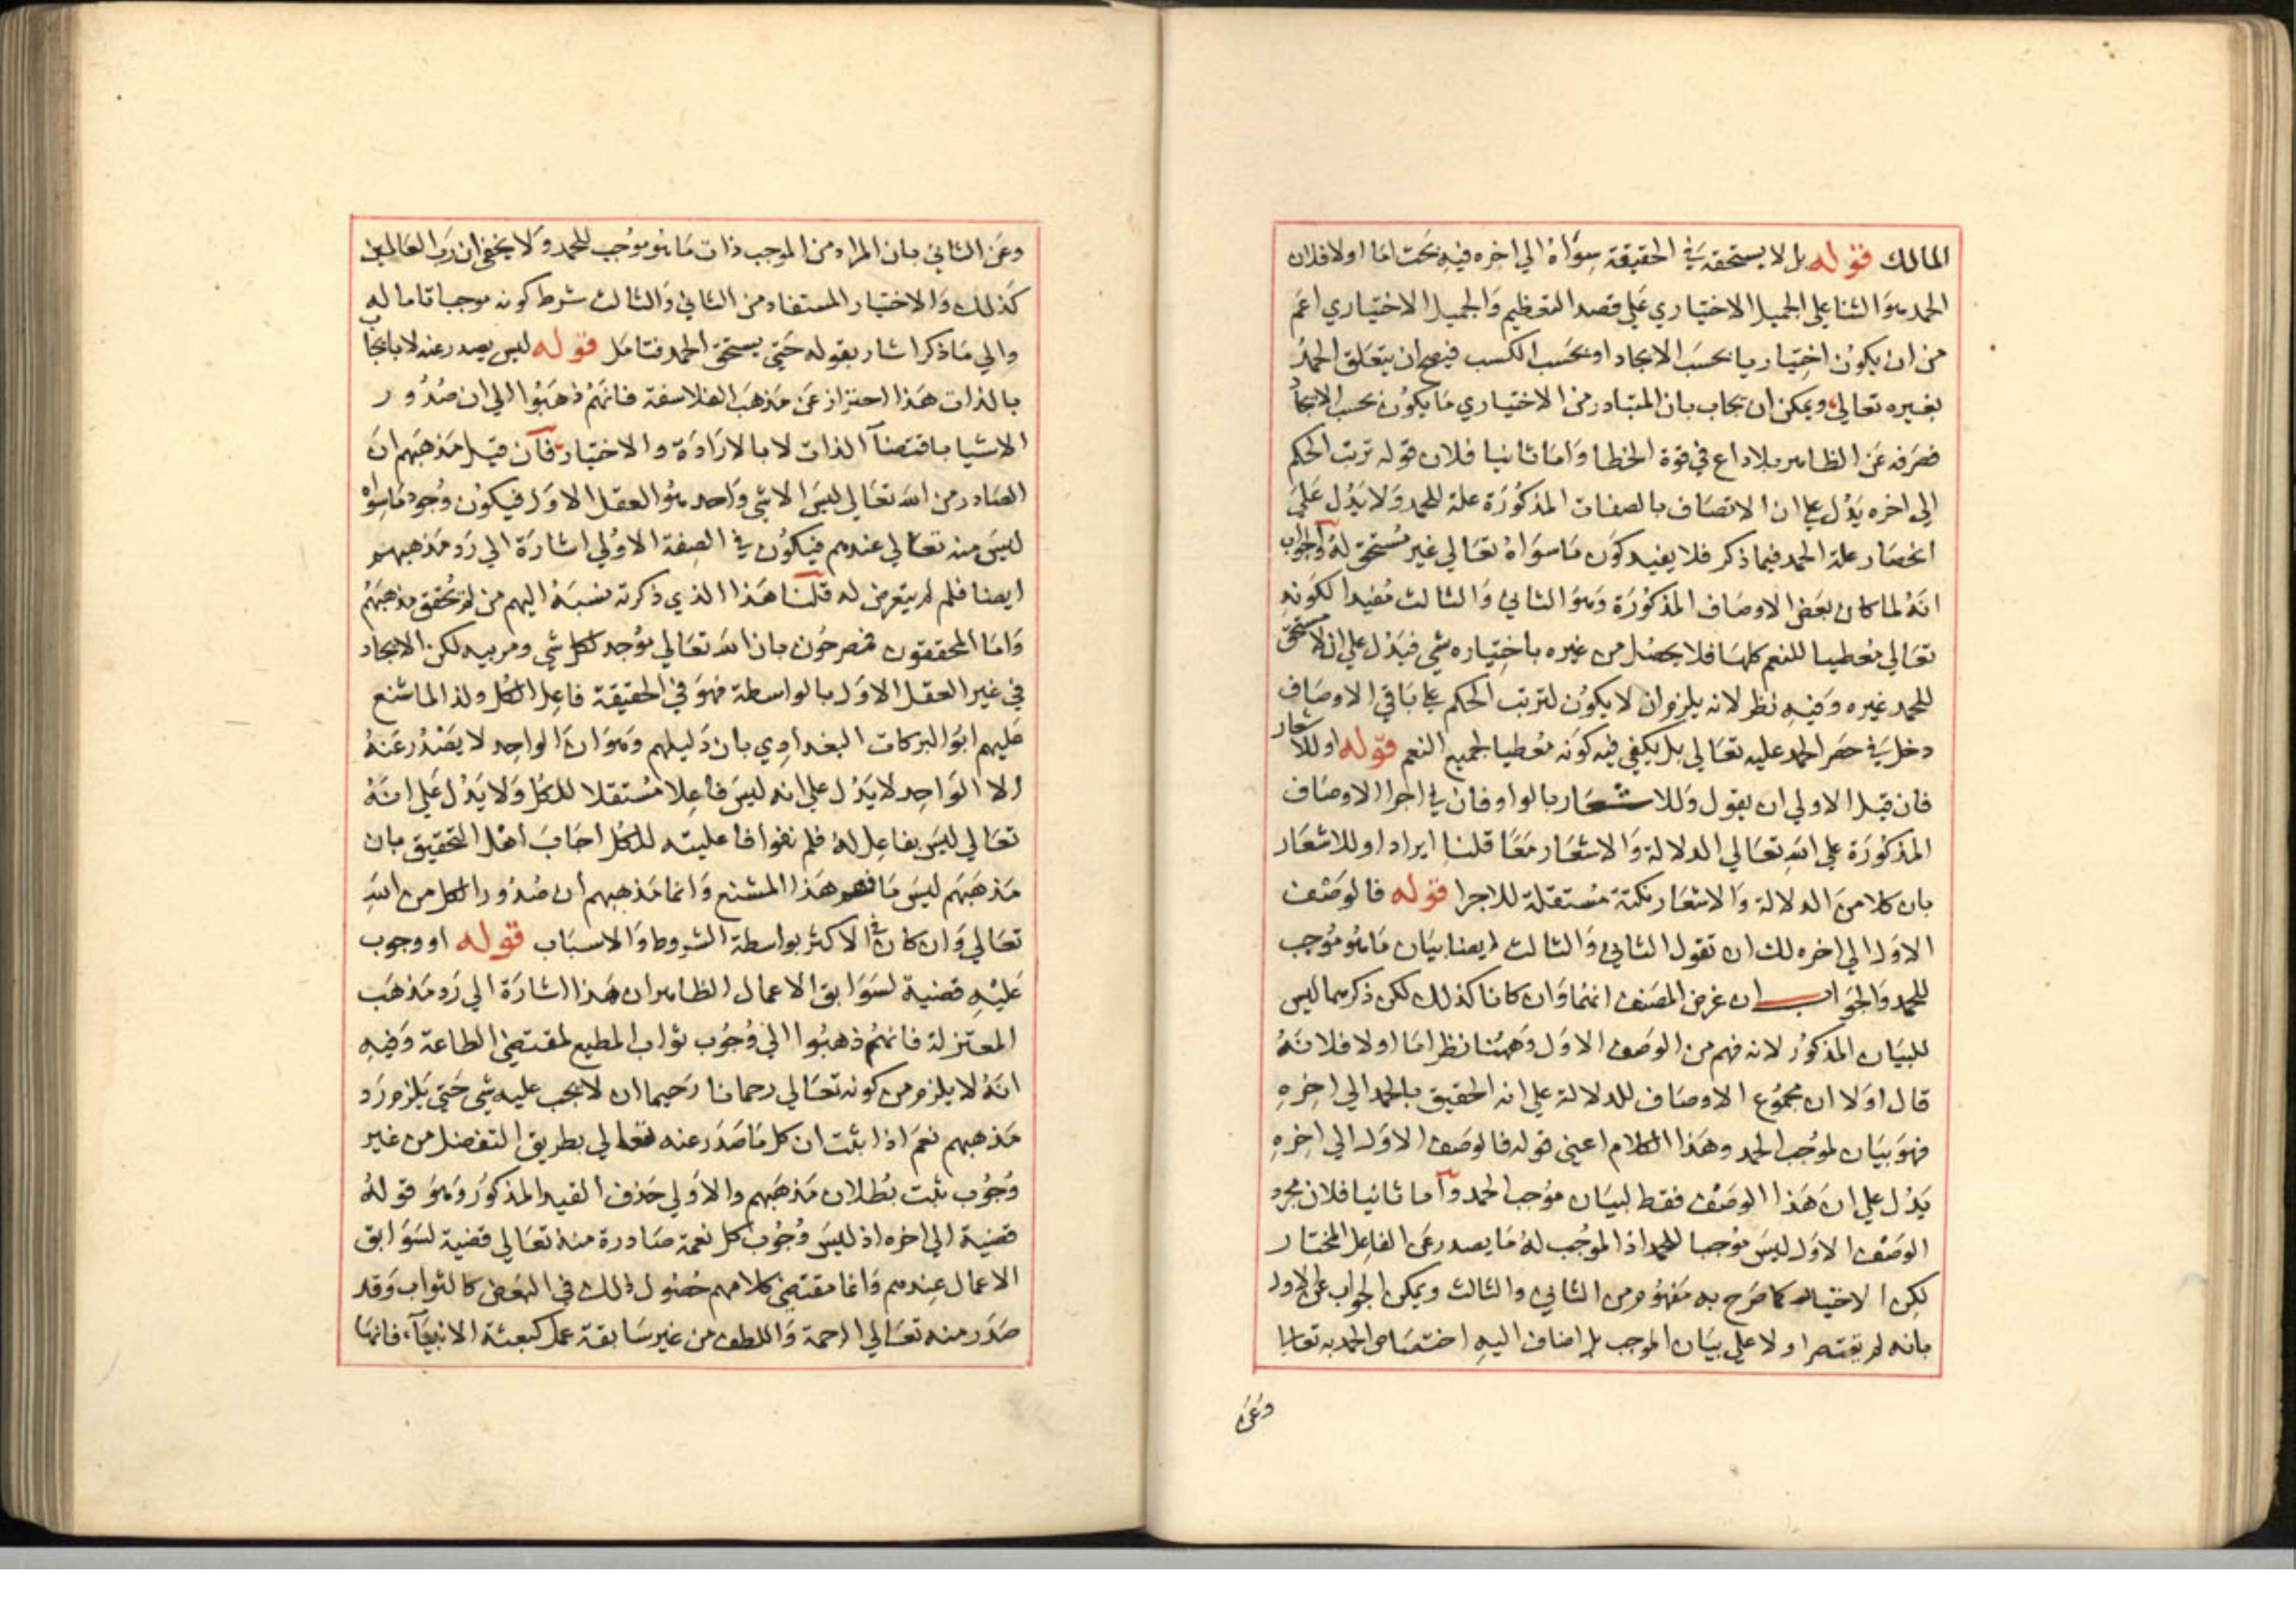 المالك قوله بل لا يستحقه في الحقيقة سواه الي اخره فيه بحث اما اولا فلان
الحمد هو الثنا علي الجميل الاختياري علي قصد التعظيم والجميل الاختياري اعم
من ان يكون اختياريا بحسب الايجاد او بحسب الكسب فيصح ان يتعلق الحمد
بغيره تعالي ويمكن ان يجاب بان المتبادر من الاختياري ما يكون بحسب الايجاد
فصرفه عن الظاهر بلا داع في قوة الخطا واما ثانيا فلان قوله ترتب الحكم
الي اخره يدل علي ان الاتصاف بالصفات المذكورة علة للحمد ولا يدل علي
انحصار علة الحمد فيما ذكر فلا يفيد كون ما سواه تعالي غير مستحق له والجواب
انه لما كان بعض الاوصاف المذكورة وهو الثاني والثالث مفيدا لكونه
تعالي معطيا للنعم كلها فلا يحصل من غيره باختياره شي فيدل علي ان لا مستحق
للحمد غيره وفيه نظر لانه يلزم ان لا يكون لترتب الحكم علي باقي الاوصاف
دخل في حصر الحمد عليه تعالي بل يكفي فيه كونه معطيا لجميع النعم قوله او للاشعار
فان قيل الاولي ان يقول وللاشعار بالواو فان في اجرا الاوصاف
المذكورة علي الله تعالي الدلالة والاشعار معا قلنا ايراد او للاشعار
بان كلا من الدلالة والاشعار نكتة مستقلة للاجرا قوله فالوصف
الاول الي اخره لك ان تقول الثاني والثالث ايضا بيان ما هو موجب
للحمد والجواب ان غرض المصنف انهما وان كانا كذلك لكن ذكرهما ليس
للبيان المذكور لانه فهم من الوصف الاول وههنا نظر اما اولا فلانه
قال اولا ان مجموع الاوصاف للدلالة علي انه الحقيق بالحمد الي اخره
فهو بيان لموجب الحمد وهذا الكلام اعني قوله فالوصف الاول الي اخره
يدل علي ان هذا الوصف فقط لبيان موجب الحمد واما ثانيا فلان مجرد
الوصف الاول ليس موجبا للحمد اذ الموجب له ما يصدر عن الفاعل المختار
لكن الاختيار كما صرح به مفهوم من الثاني والثالث ويمكن الجواب عن الاول
بانه لم يقتصر اولا علي بيان الموجب بل اضاف اليه اختصاص الحمد به تعالي
وعن
وعن الثاني بان المراد من الموجب ذات ما هو موجب للحمد ولا يخفي ان رب العالمين
كذلك والاختيار المستفاد من الثاني والثالث شرط كونه موجبا تاما له
والي ما ذكر اشار بقوله حتي يستحق الحمد فتامل قوله ليس يصدر عنه لا بايجاب
بالذات هذا احتراز عن مذهب الفلاسفة فانهم ذهبوا الي ان صدور
الاشيا باقتضآ الذات لا بالارادة والاختيار فان قيل مذهبهم ان
الصادر من الله تعالي ليس الا شي واحد هو العقل الاول فيكون وجود ما سواه
ليس منه تعالي عندهم فيكون في الصفة الاولي اشارة الي رد مذهبهم
ايضا فلم لم يتعرض له قلنا هذا الذي ذكرته نسبه اليهم من لم يحقق مذهبهم
واما المحققون فيصرحون بان الله تعالي موجد لكل شي ومربيه لكن الايجاد
في غير العقل الاول بالواسطة فهو في الحقيقة فاعل الكل ولذا لما شنع
عليهم ابو البركات البغدادي بان دليلهم وهو ان الواحد لا يصدر عنه
الا الواحد لا يدل علي انه ليس فاعلا مستقلا للكل ولا يدل علي انه
تعالي ليس بفاعل له فلم نفوا فاعليته للكل اجاب اهل التحقيق بان
مذهبهم ليس ما فهم هذا المشنع وانما مذهبهم ان صدور الكل من الله
تعالي وان كان في الاكثر بواسطة الشروط والاسباب قوله او وجوب
عليه قضية لسوابق الاعمال الظاهر ان هذا اشارة الي رد مذهب
المعتزلة فانهم ذهبوا الي وجوب ثواب المطيع لمقتضي الطاعة وفيه
انه لا يلزم من كونه تعالي رحمانا رحيما ان لا يجب عليه شي حتي يلزم رد
مذهبهم نعم اذا ثبت ان كل ما صدر عنه تعالي بطريق التفضل من غير
وجوب ثبت بطلان مذهبهم والاولي حذف القيد المذكور وهو قوله
قضية الي اخره اذ ليس وجوب كل نعمة صادرة منه تعالي قضية لسوابق
الاعمال عندهم وانما مقتضي كلامهم حصول ذلك في البعض كالثواب وقد
صدر منه تعالي الرحمة واللطف من غير سابقة عمل كبعثة الانبيآء فانها